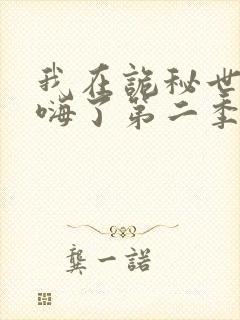 我在詭秘世
嗨了第二季
龔一諾